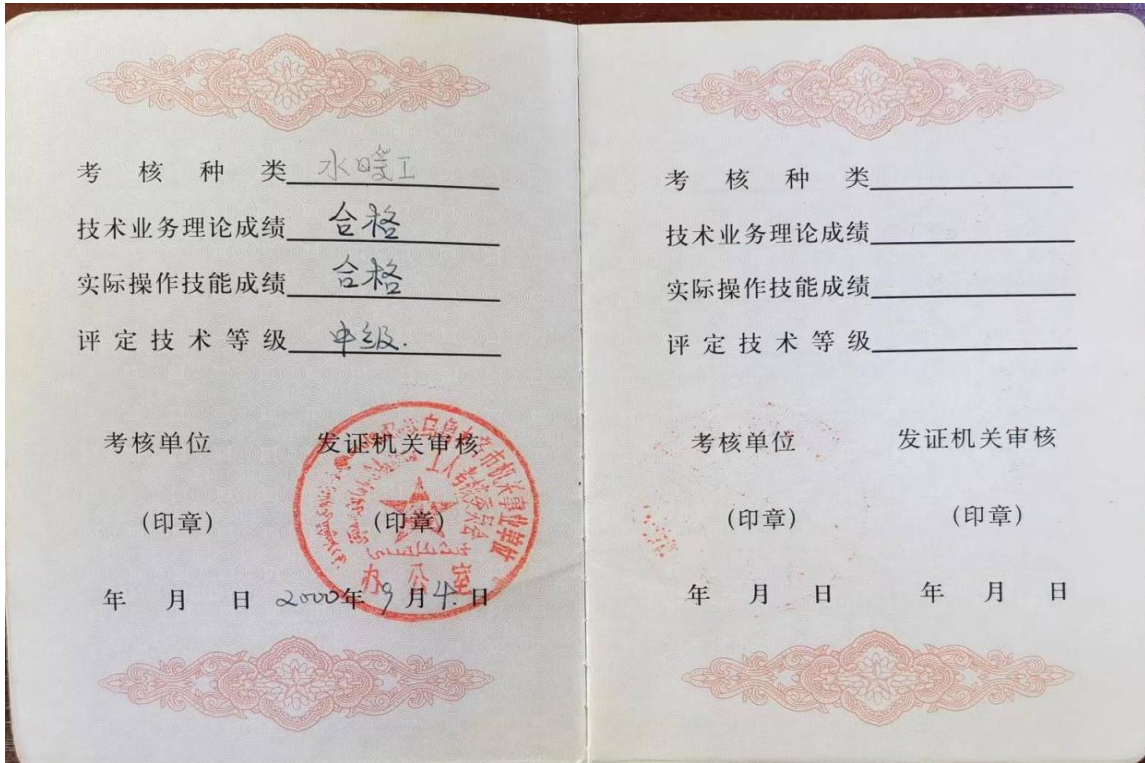 考核种类 水暖工
技术业务理论成绩 合格
实际操作技能成绩 合格
评定技术等级 中级.
考核单位 发证机关审核
(印章) (印章)
年 月 日 2000年9月4.日
乌鲁木齐市机关事业单位
工人考核委员会
办公室
考核种类
技术业务理论成绩
实际操作技能成绩
评定技术等级
考核单位 发证机关审核
(印章) (印章)
年 月 日 年 月 日